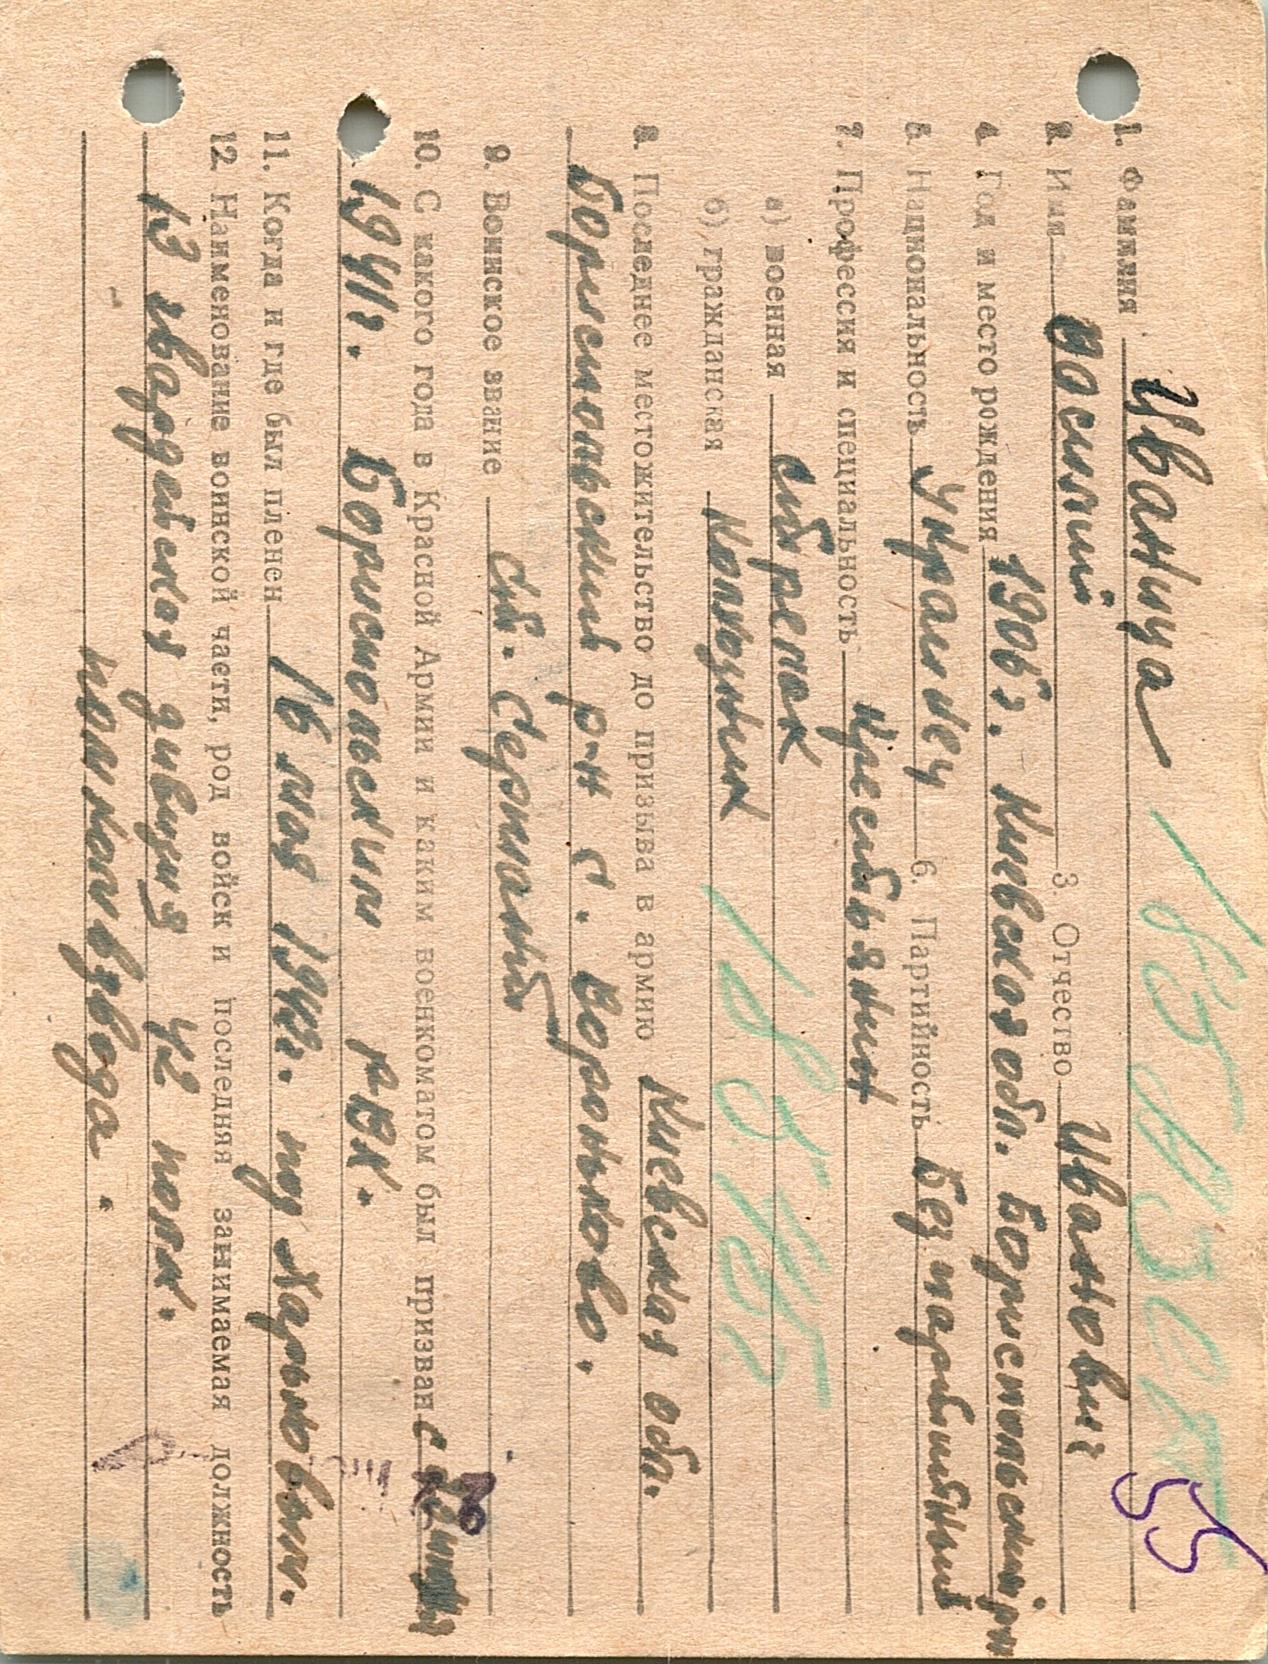 1. Фамилия Иваница
2. Имя Василий 3. Отчество Иванович
4. Год и место рождения 1906 г. Киевская обл. Бориспольский р-н
5. Национальность Украинец 6. Партийность Безпартийный
7. Профессия и специальность Крестьянин
а) военная стрелок
б) гражданская Колхозник
8. Последнее местожительство до призыва в армию Киевская обл.
Бориспольский р-н с. Вороньково.
9. Воинское звание Ст. Сержант
10. С какого года в Красной Армии и каким военкоматом был призван с
1941г. Бориспольским РВК.
11. Когда и где был пленен 16 мая 1942г. под Харьковым.
12. Наименование воинской части, род войск и последняя занимаемая должность
13 гвардейская дивизия 42 полк.
помкомвзвода.
55